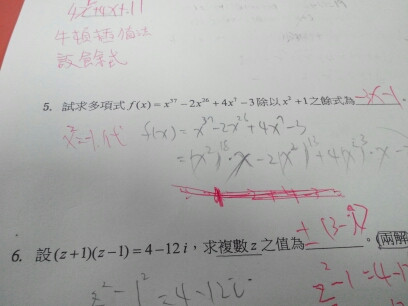 4x²+4x+11
牛頓插值法
設餘式
5. 試求多項式 f(x) = x³⁷ − 2x²⁶ + 4x⁷ − 3 除以 x² + 1 之餘式為 -3x-1 。
x²=-1代 f(x) = x³⁷-2x²⁶+4x⁷-3
= (x²)¹⁸·x - 2(x²)¹³ + 4(x²)³·x -
6. 設 (z+1)(z−1) = 4−12i，求複數 z 之值為 ± (3-i) 。(兩解
z² - 1² = 4-12i z² - 1 = 4-1